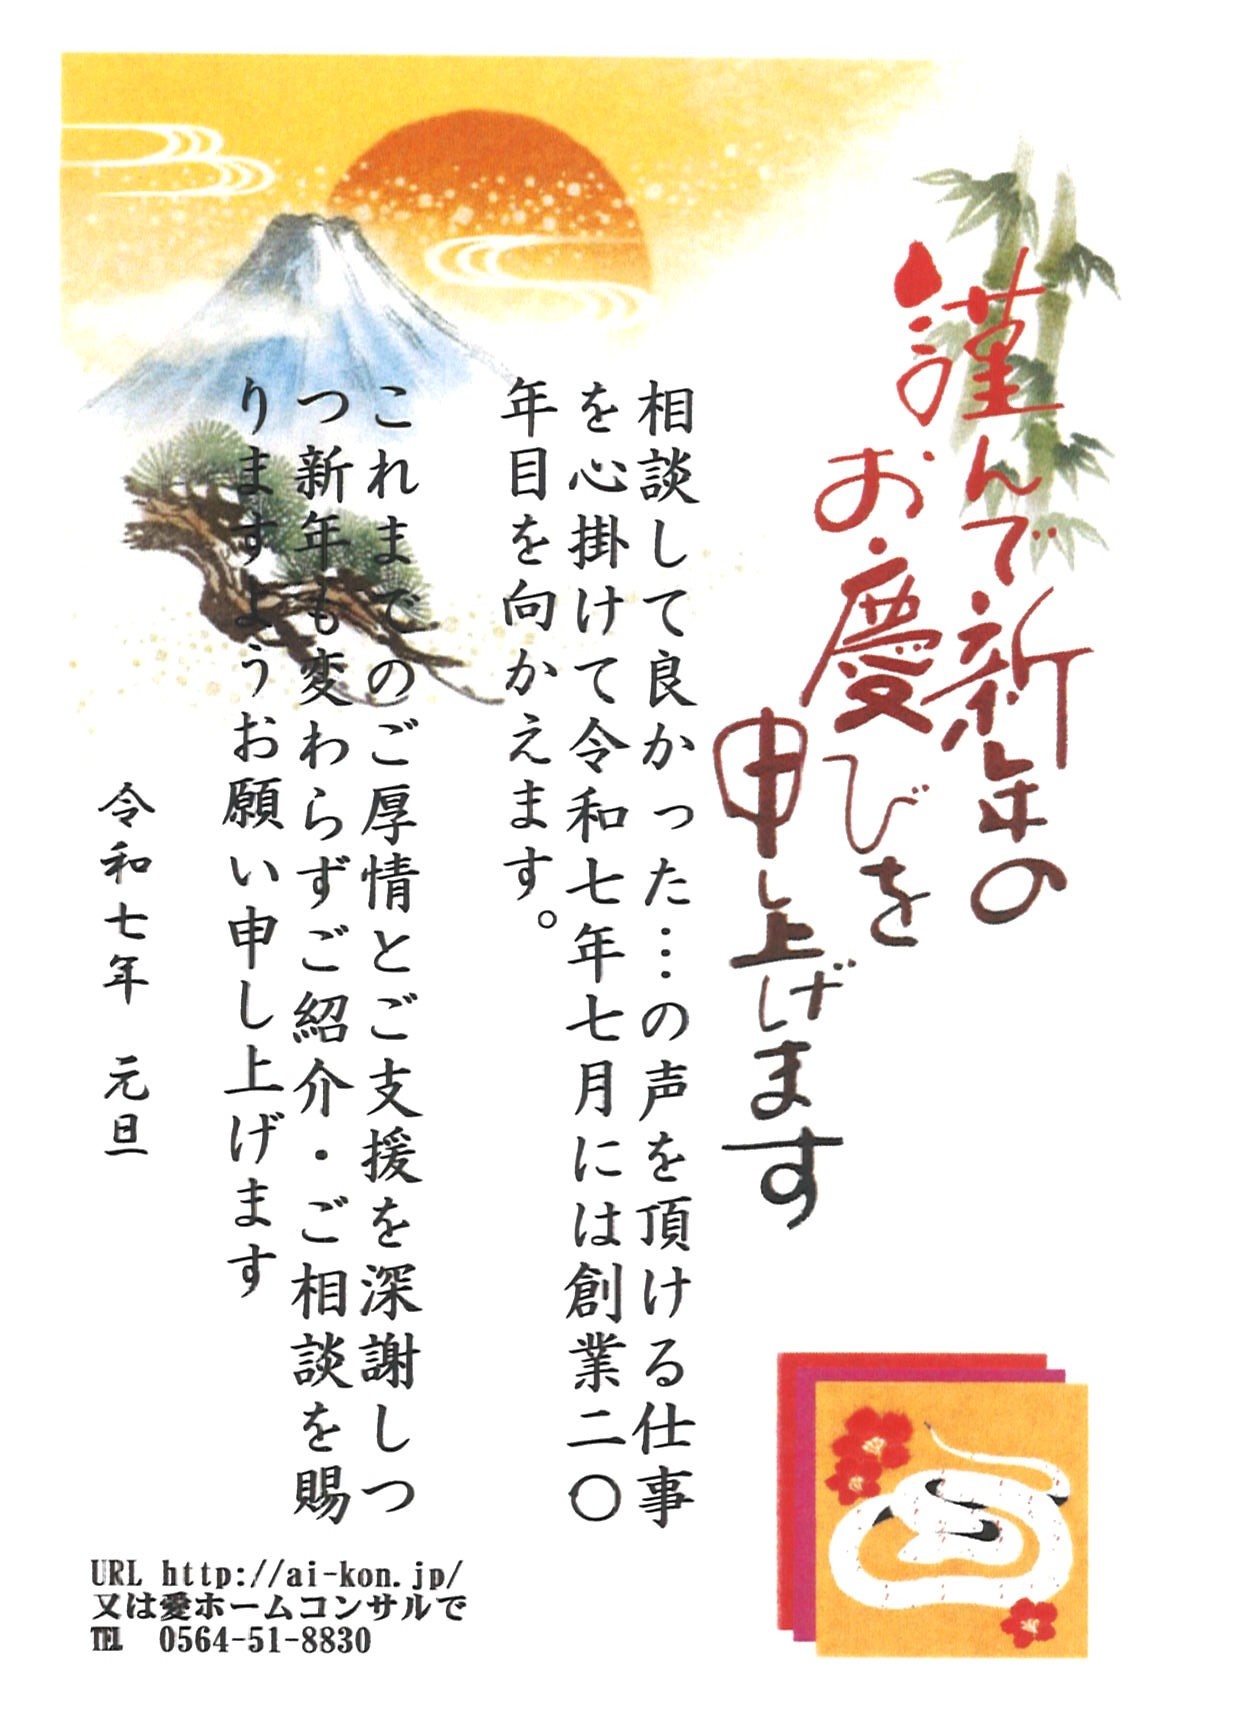 謹んで新年の
お慶びを
申し上げます
相談して良かった…の声を頂ける仕事
を心掛けて令和七年七月には創業二〇
年目を向かえます。
これまでのご厚情とご支援を深謝しつ
つ新年も変わらずご紹介・ご相談を賜
りますようお願い申し上げます
令和七年　元旦
URL http://ai-kon.jp/
又は愛ホームコンサルで
℡　0564-51-8830